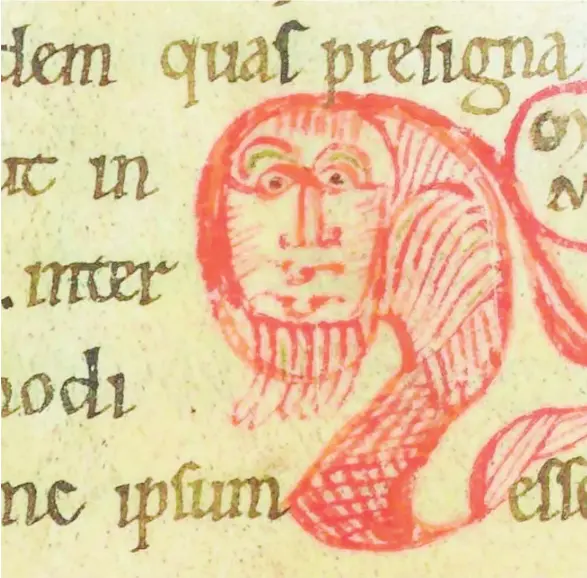 dem quaſ preſigna
ut in
.inter
odi
nc ipſum eſſe